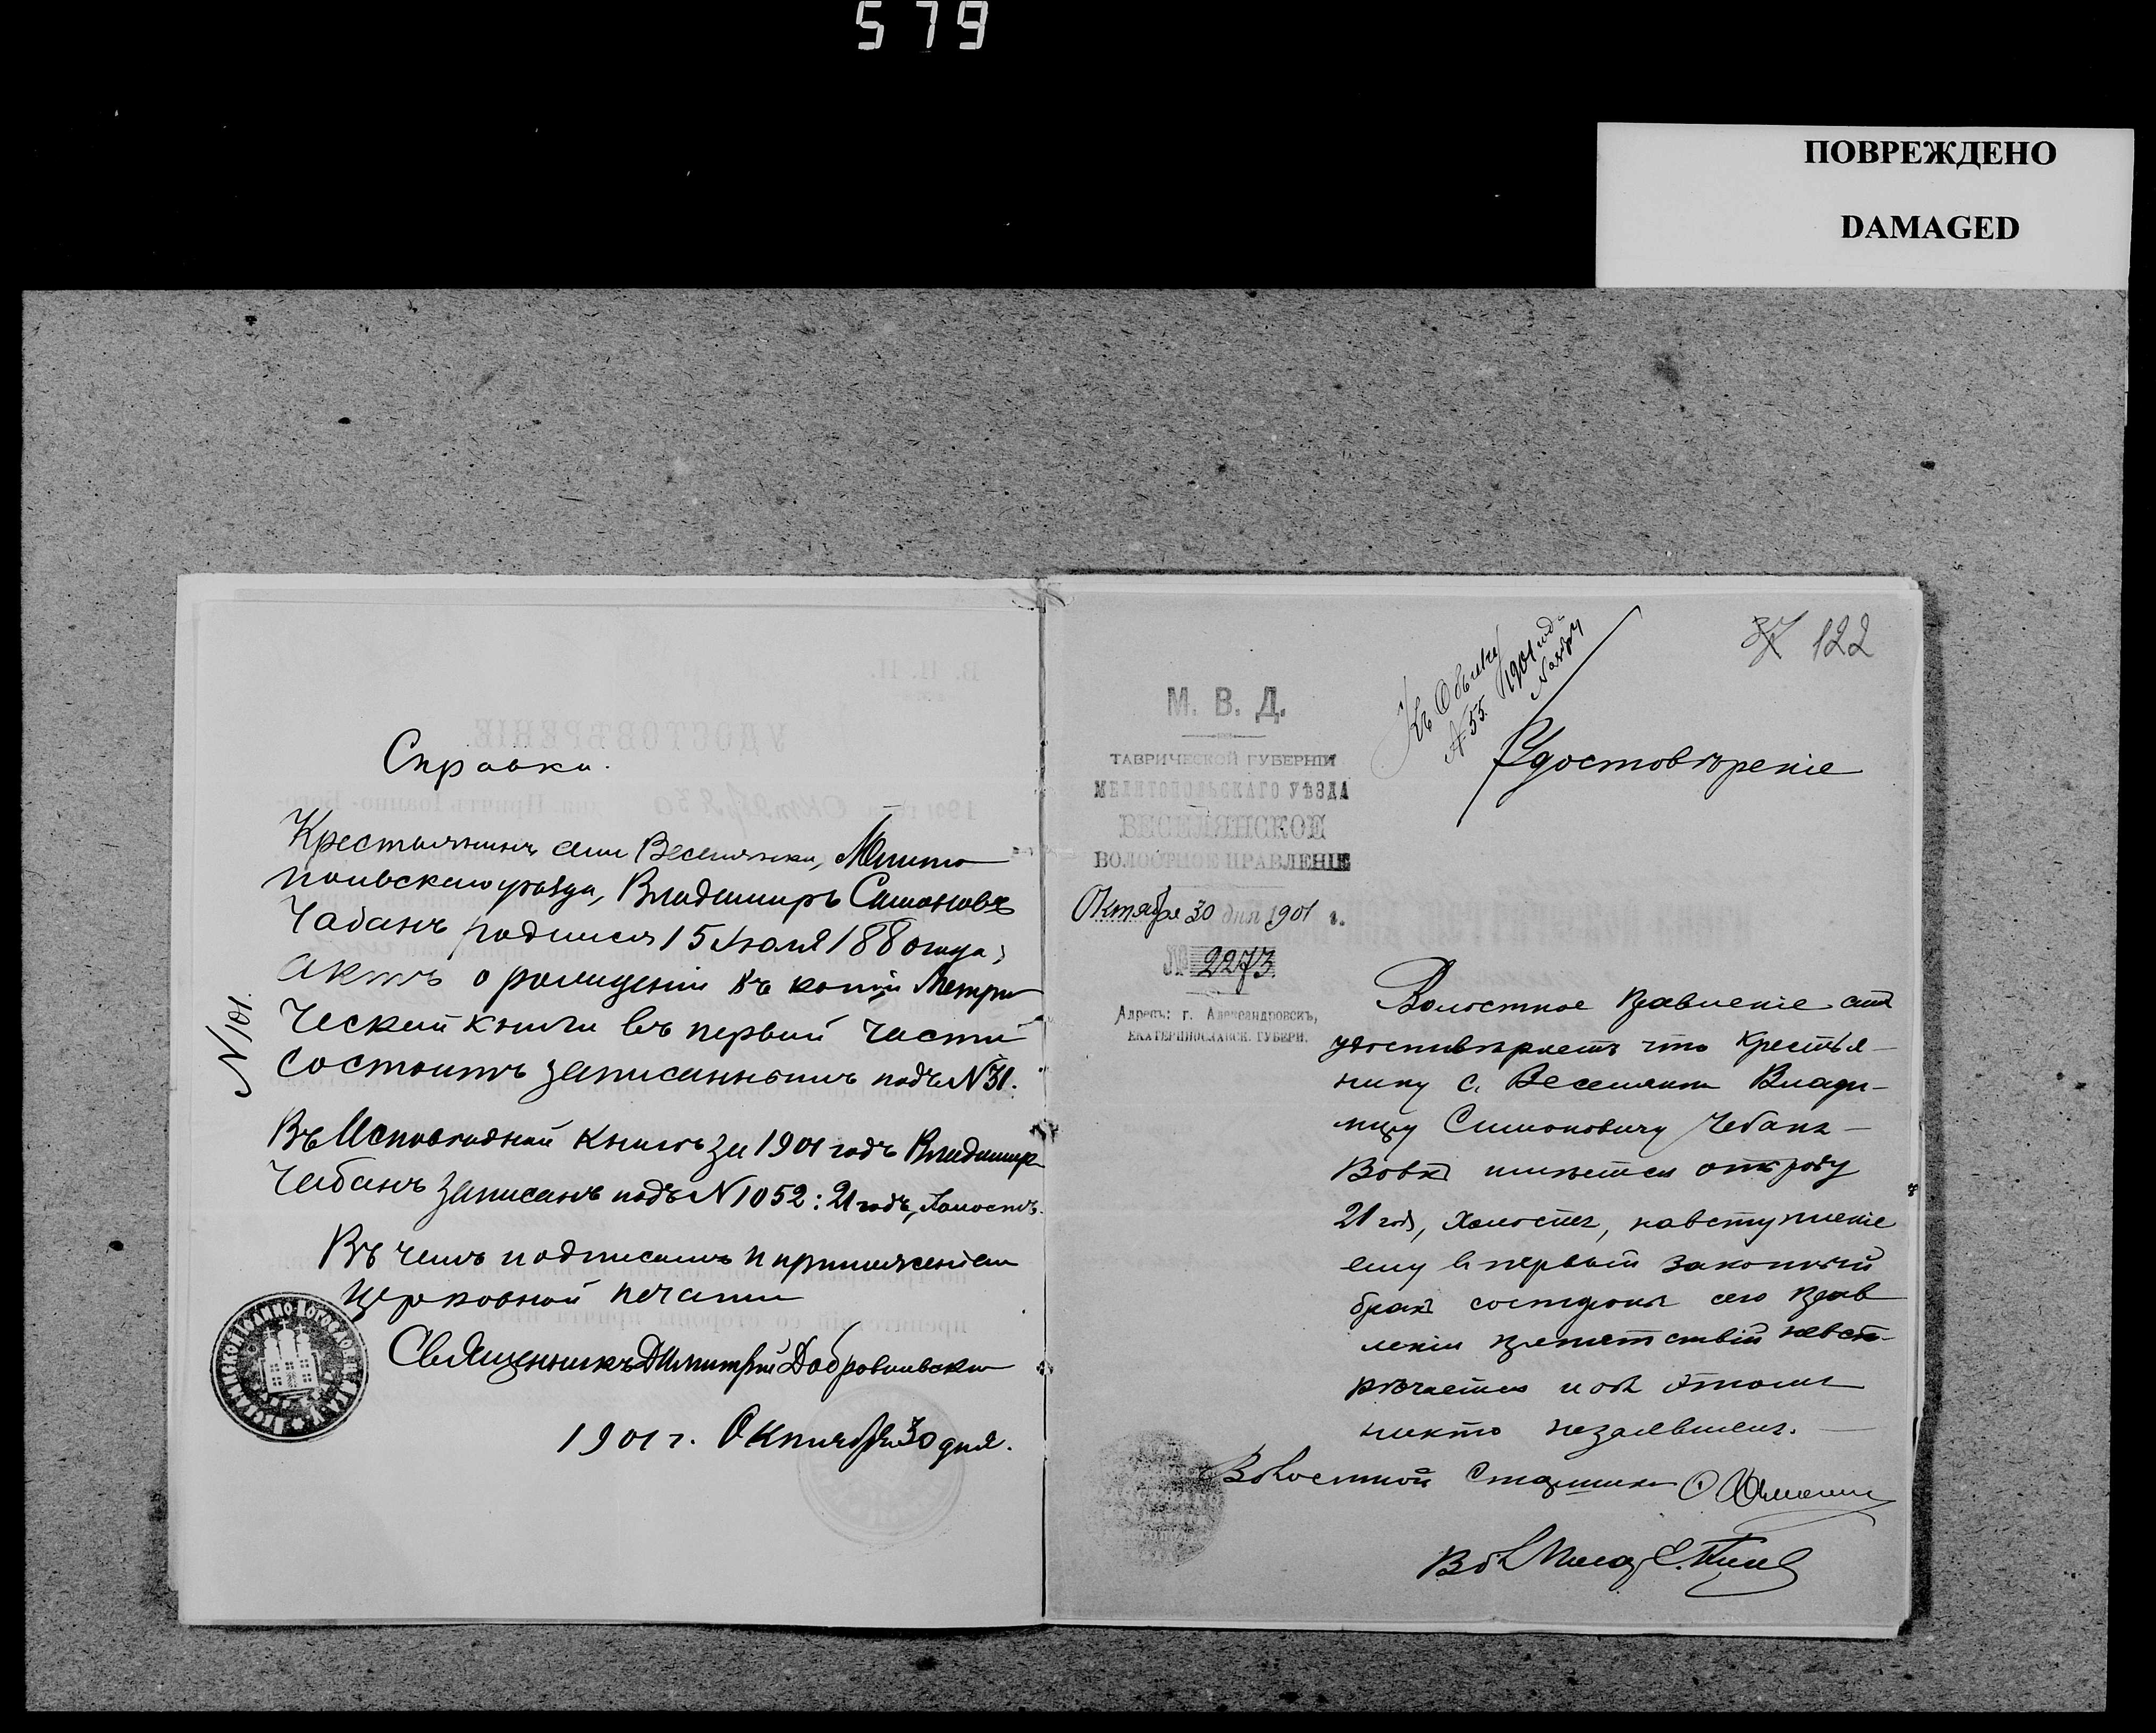 579
ПОВРЕЖДЕНО
DAMAGED
Справка.
Крестьянинъ села Веселянки, Мелито
польскаго уѣзда, Владимиръ Симоновъ
Чабанъ родился 15 Июля 1880 года;
актъ о рождении въ копіи Метри
ческой книги въ первой части
состоитъ записаннымъ подъ N 31.
N 101.
Въ Исповѣдной книгѣ за 1901 годъ Владимиръ
Чабанъ записанъ подъ N 1052: 21 годъ, холостъ.
Въ чемъ подписомъ и приложеніем
церковной печати
Священникъ Димитрій Добровольский
1901 г. Октября 30 дня.
37 122
Къ Обыску
N 55. 1901 год
Ноября
М. В. Д.
ТАВРИЧЕСКОЙ ГУБЕРНІИ
МЕЛИТОПОЛЬСКАГО УѢЗДА
ВЕСЕЛЯНСКОЕ
ВОЛОСТНОЕ ПРАВЛЕНІЕ
Октября 30 дня 1901 г.
№ 2273.
Адресъ: г. Александровскъ,
ЕКАТЕРИНОСЛАВСК. ГУБЕРН.
Удостовѣреніе
Волостное Правленіе симъ
удостовѣряетъ что крестья-
нину с. Веселянки Влади-
миру Симоновичу Чебанъ-
Вовкъ имѣется отъ роду
21 годъ, холостъ, на вступленіе
ему въ первый законный
бракъ со стороны сего Прав
ленія препятствій не вст-
рѣчается и объ этомъ
никто не заявилъ.
Волостной Старшина
Вол Писарь